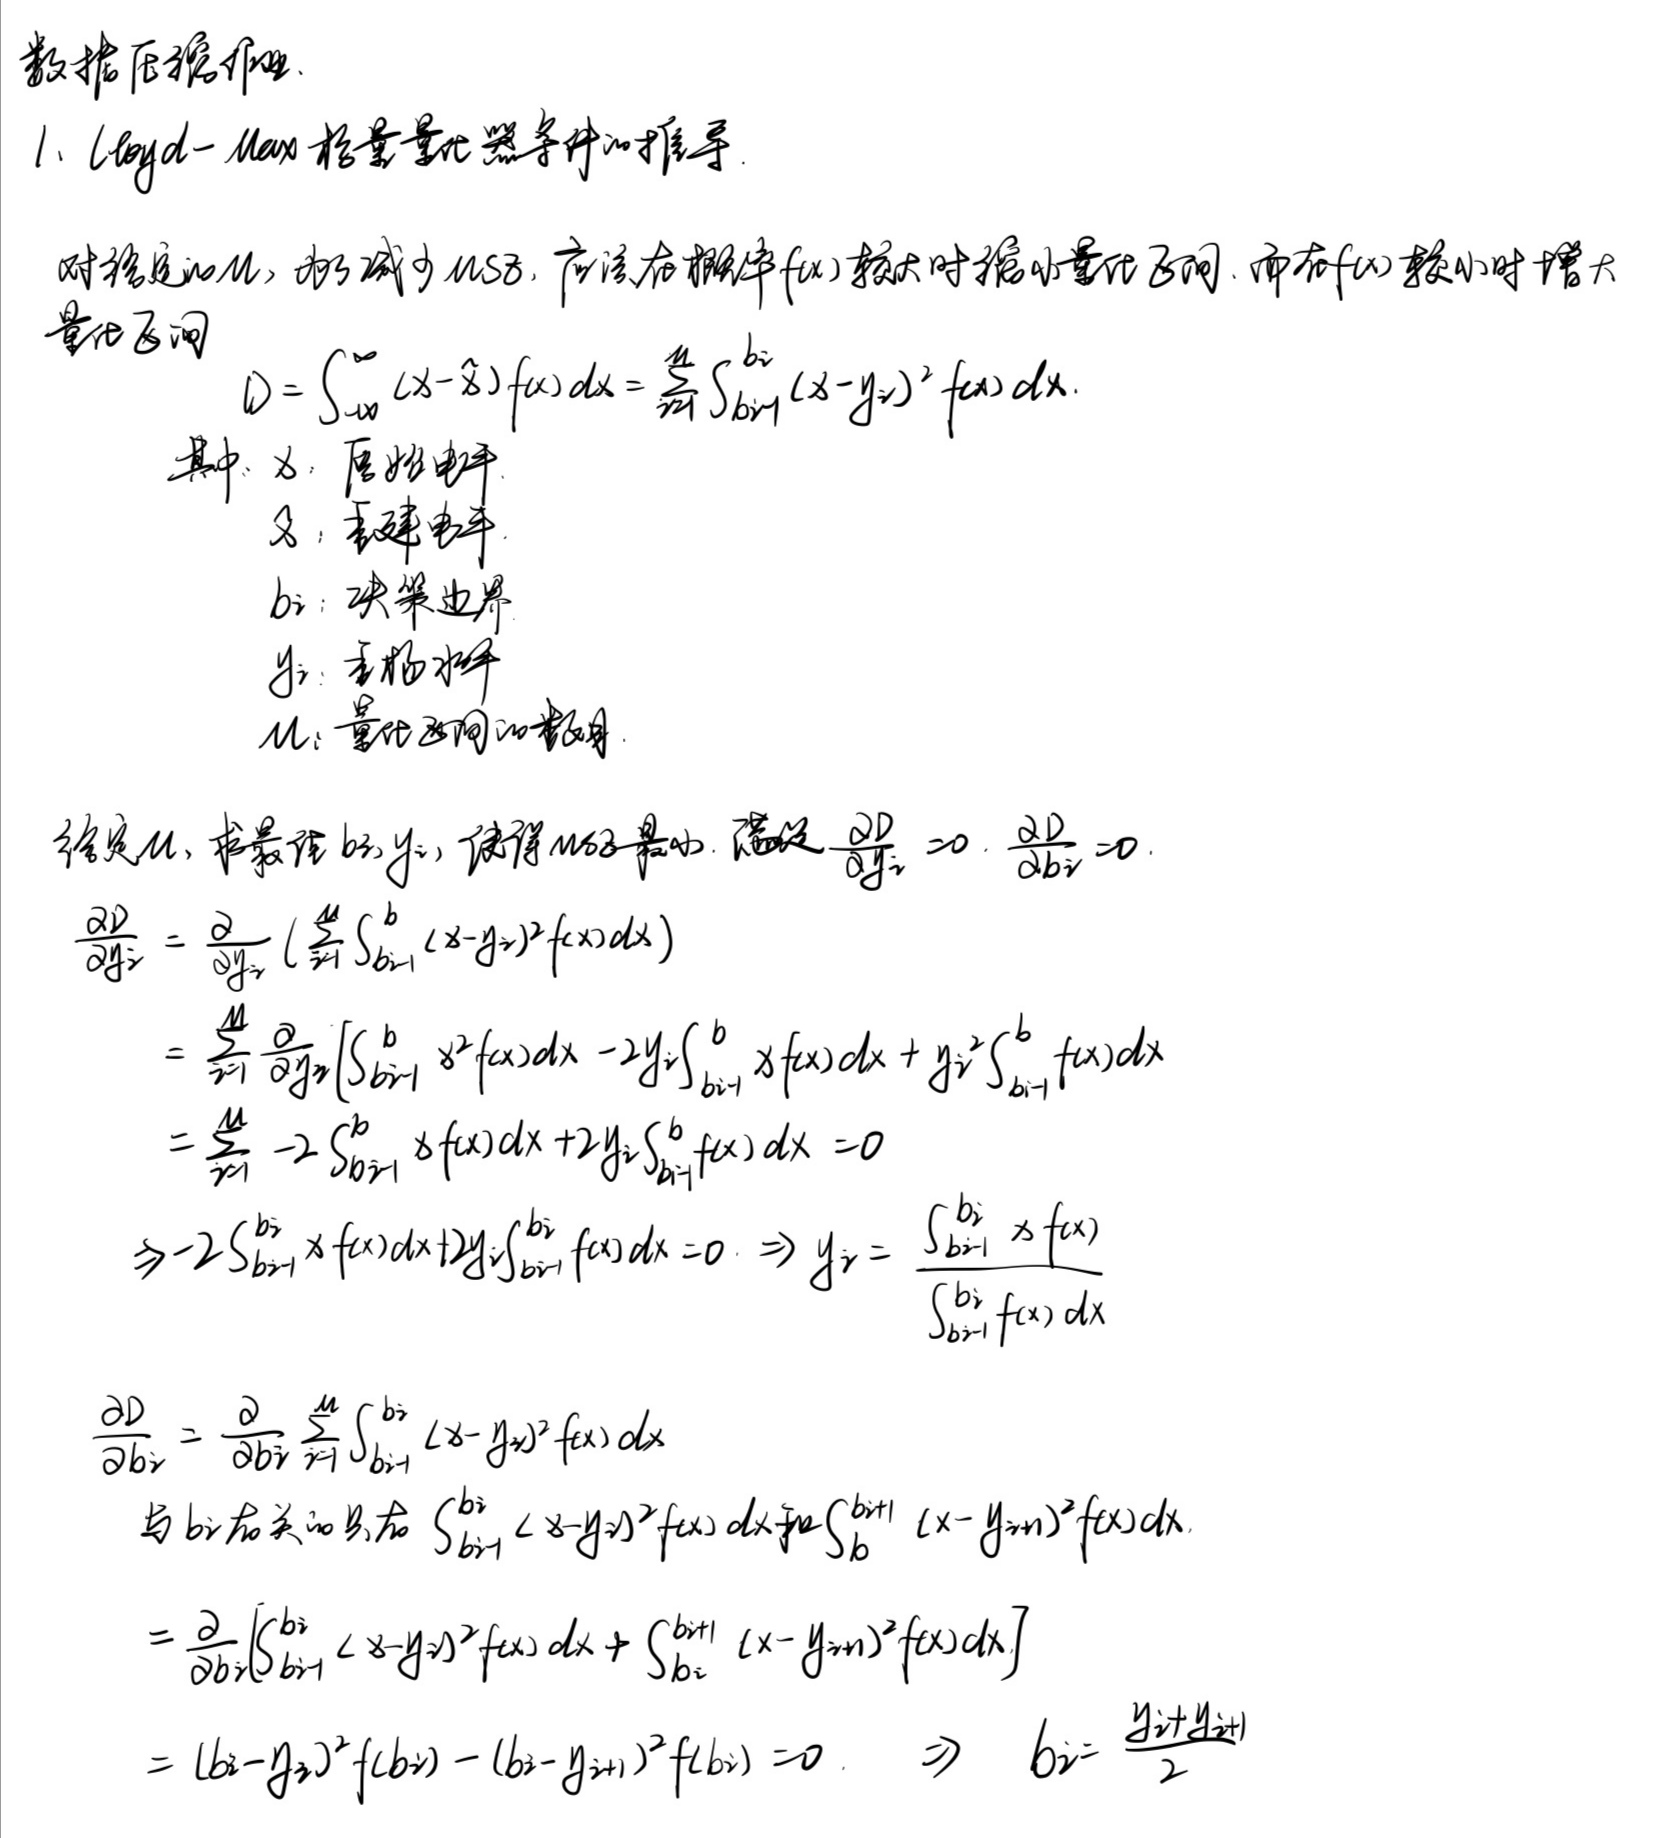 数据压缩作业.
1、Lloyd-Max标量量化器条件的推导.
对给定的M, 为了减少MSE, 应该在概率f(x)较大时缩小量化区间. 而在f(x)较小时增大
量化区间
D = ∫_{-∞}^{∞} (x-x̂) f(x) dx = Σ_{i=1}^{M} ∫_{b_{i-1}}^{b_i} (x-y_i)² f(x) dx.
其中: x: 原始电平.
x̂: 重建电平.
b_i: 决策边界
y_i: 重构水平
M: 量化区间的数目.
给定M, 求最佳 b_i, y_i, 使得MSE最小. 满足 ∂D/∂y_i = 0. ∂D/∂b_i = 0.
∂D/∂y_i = ∂/∂y_i (Σ_{i=1}^{M} ∫_{b_{i-1}}^{b} (x-y_i)² f(x) dx)
= Σ_{i=1}^{M} ∂/∂y_i [∫_{b_{i-1}}^{b} x² f(x) dx - 2y_i ∫_{b_{i-1}}^{b} x f(x) dx + y_i² ∫_{b_{i-1}}^{b} f(x) dx
= Σ_{i=1}^{M} -2 ∫_{b_{i-1}}^{b} x f(x) dx + 2y_i ∫_{b_{i-1}}^{b} f(x) dx = 0
⇒ -2 ∫_{b_{i-1}}^{b_i} x f(x) dx + 2y_i ∫_{b_{i-1}}^{b_i} f(x) dx = 0. ⇒ y_i = ∫_{b_{i-1}}^{b_i} x f(x) / ∫_{b_{i-1}}^{b_i} f(x) dx
∂D/∂b_i = ∂/∂b_i Σ_{i=1}^{M} ∫_{b_{i-1}}^{b_i} (x-y_i)² f(x) dx
与b_i有关的只有 ∫_{b_{i-1}}^{b_i} (x-y_i)² f(x) dx 和 ∫_{b}^{b_{i+1}} (x-y_{i+1})² f(x) dx.
= ∂/∂b_i [∫_{b_{i-1}}^{b_i} (x-y_i)² f(x) dx + ∫_{b_i}^{b_{i+1}} (x-y_{i+1})² f(x) dx]
= (b_i-y_i)² f(b_i) - (b_i-y_{i+1})² f(b_i) = 0. ⇒ b_i = (y_i+y_{i+1})/2